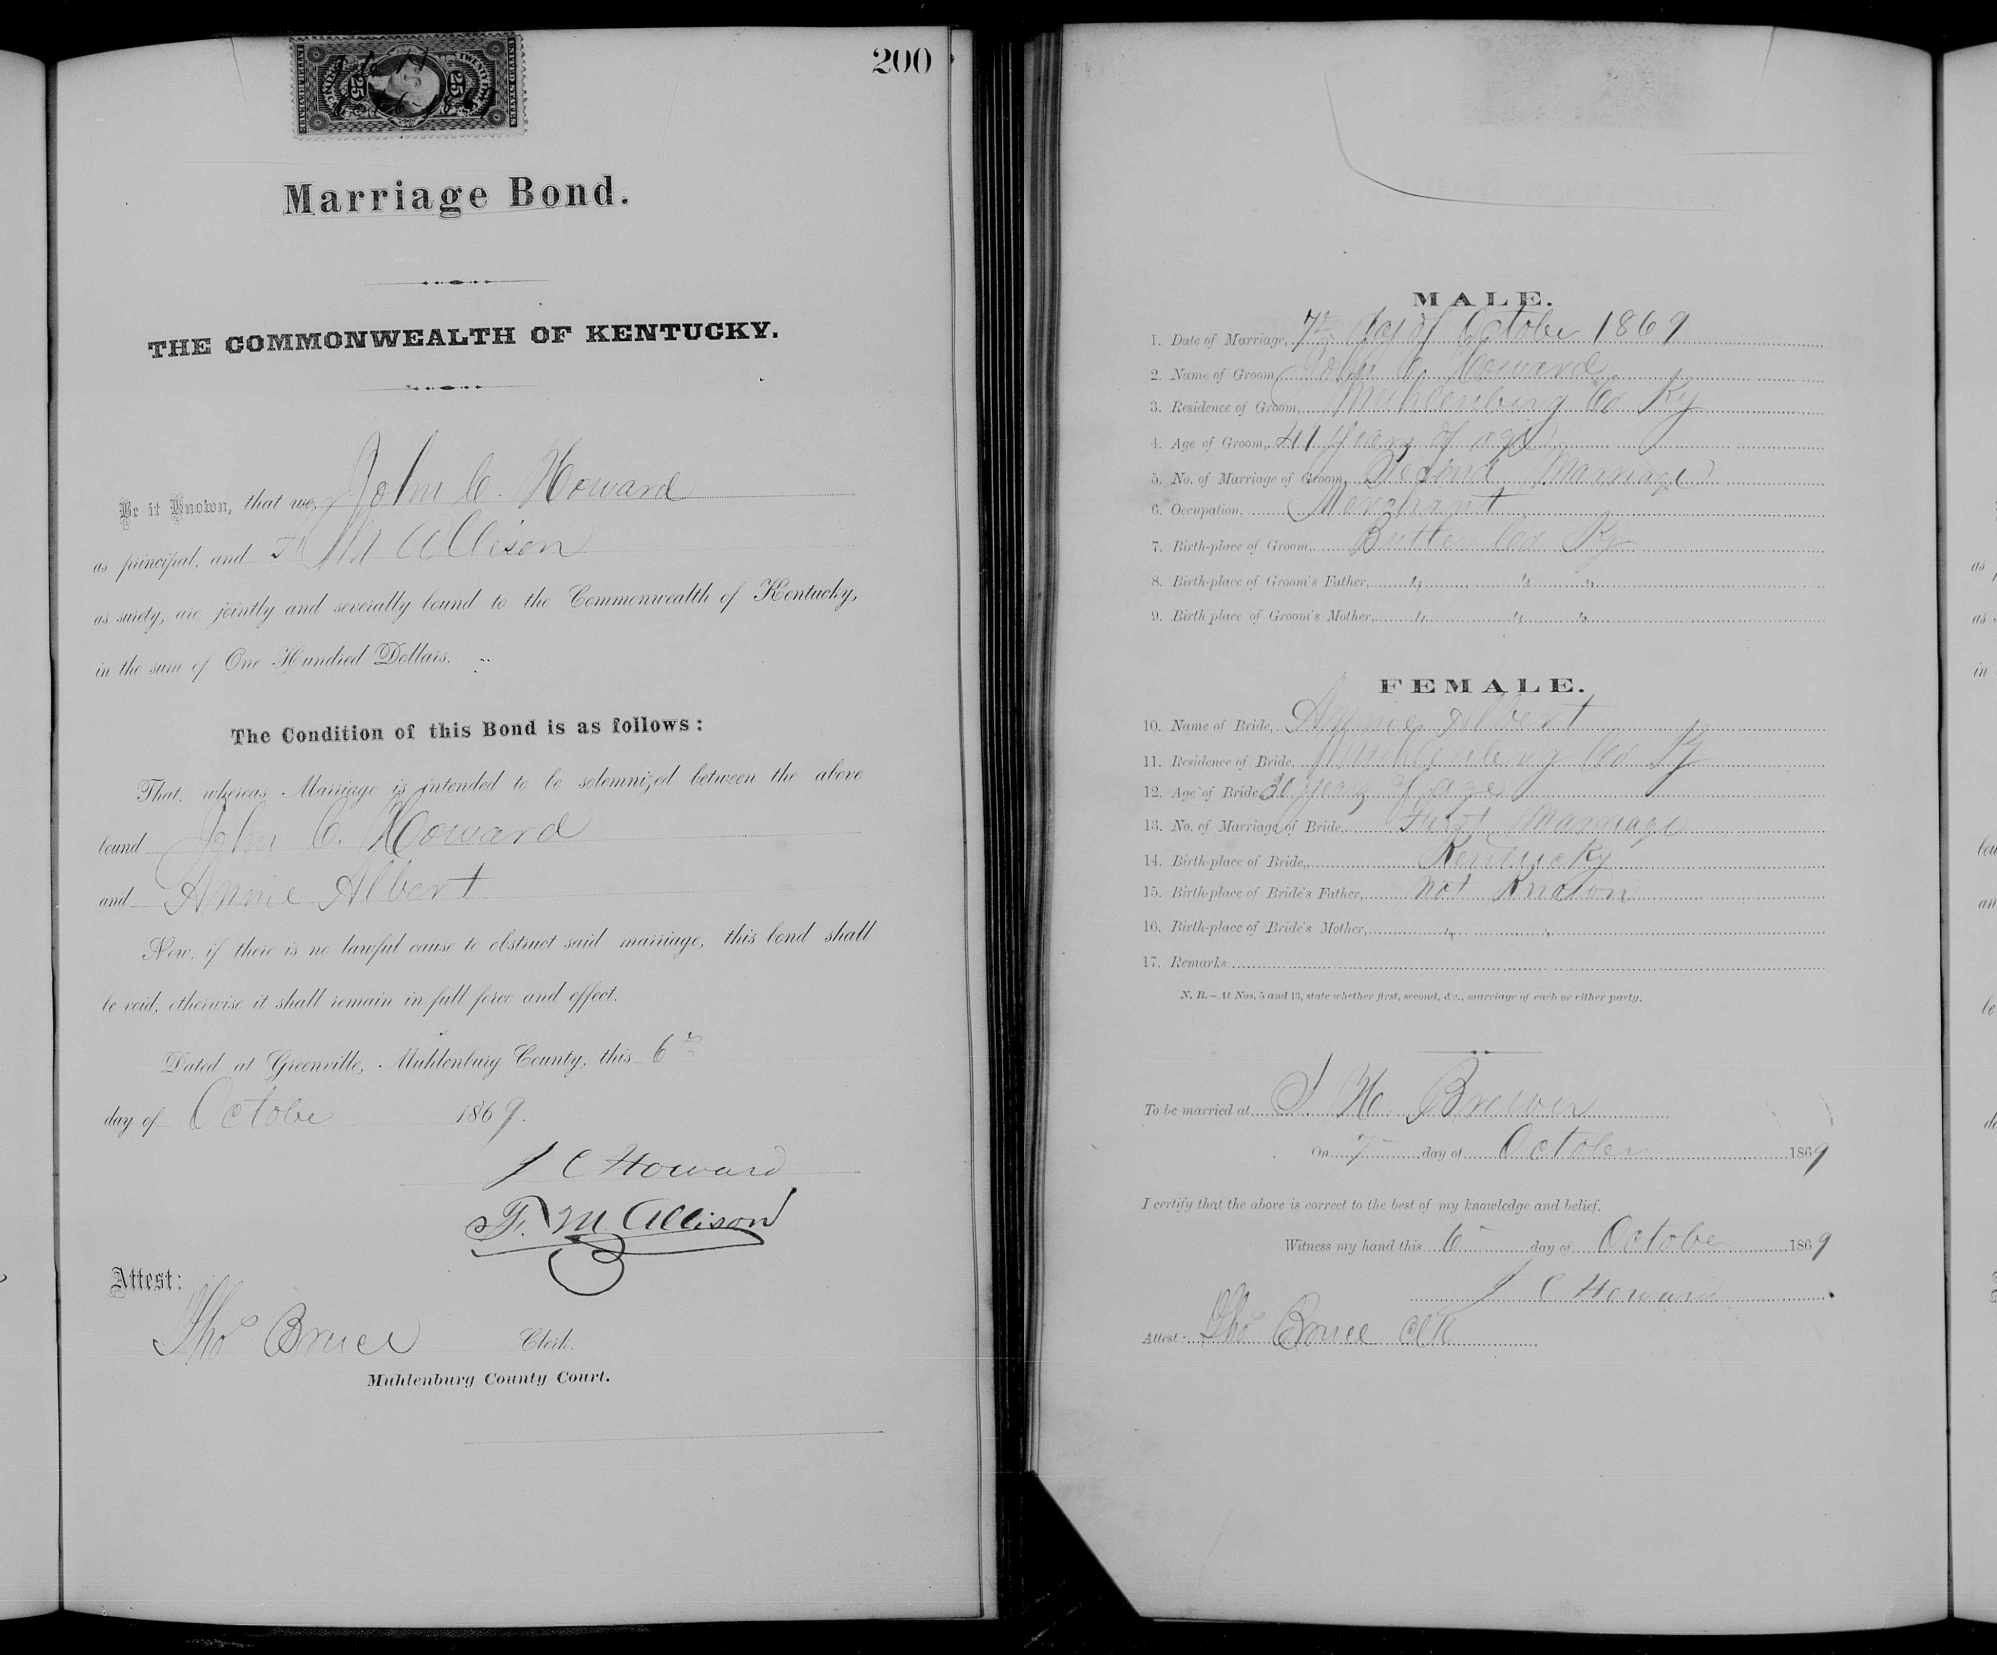 200
Marriage Bond.
THE COMMONWEALTH OF KENTUCKY.
Be it Known, that we, John C. Howard
as principal, and F M Allison
as surety, are jointly and severally bound to the Commonwealth of Kentucky,
in the sum of One Hundred Dollars.
The Condition of this Bond is as follows:
That, whereas Marriage is intended to be solemnized between the above
bound John C. Howard
and Annie Albert
Now, if there is no lawful cause to obstruct said marriage, this bond shall
be void, otherwise it shall remain in full force and effect.
Dated at Greenville, Muhlenburg County, this 6th
day of Octobe 1869.
J C Howard
F. M Allison
Attest:
Thos Bruce Clerk.
Muhlenburg County Court.
MALE.
1. Date of Marriage, 7th day of October 1869
2. Name of Groom, John C. Howard
3. Residence of Groom, Muhlenburg Co Ky
4. Age of Groom, 41 years of age
5. No. of Marriage of Groom, Second Marriage
6. Occupation, Merchant
7. Birth-place of Groom, Butler Co Ky
8. Birth-place of Groom's Father, " " "
9. Birth place of Groom's Mother, " " "
FEMALE.
10. Name of Bride, Annie Albert
11. Residence of Bride, Muhlenburg Co Ky
12. Age of Bride 30 years of age
13. No. of Marriage of Bride, First Marriage
14. Birth-place of Bride, Kentucky
15. Birth-place of Bride's Father, not Known
16. Birth-place of Bride's Mother, " "
17. Remarks
N. B.—At Nos. 5 and 13, state whether first, second, &c., marriage of each or either party.
To be married at J W. Brewers
On 7 day of October 1869
I certify that the above is correct to the best of my knowledge and belief.
Witness my hand this 6 day of Octobe 1869
J C Howard
Attest: Thos Bruce Clk